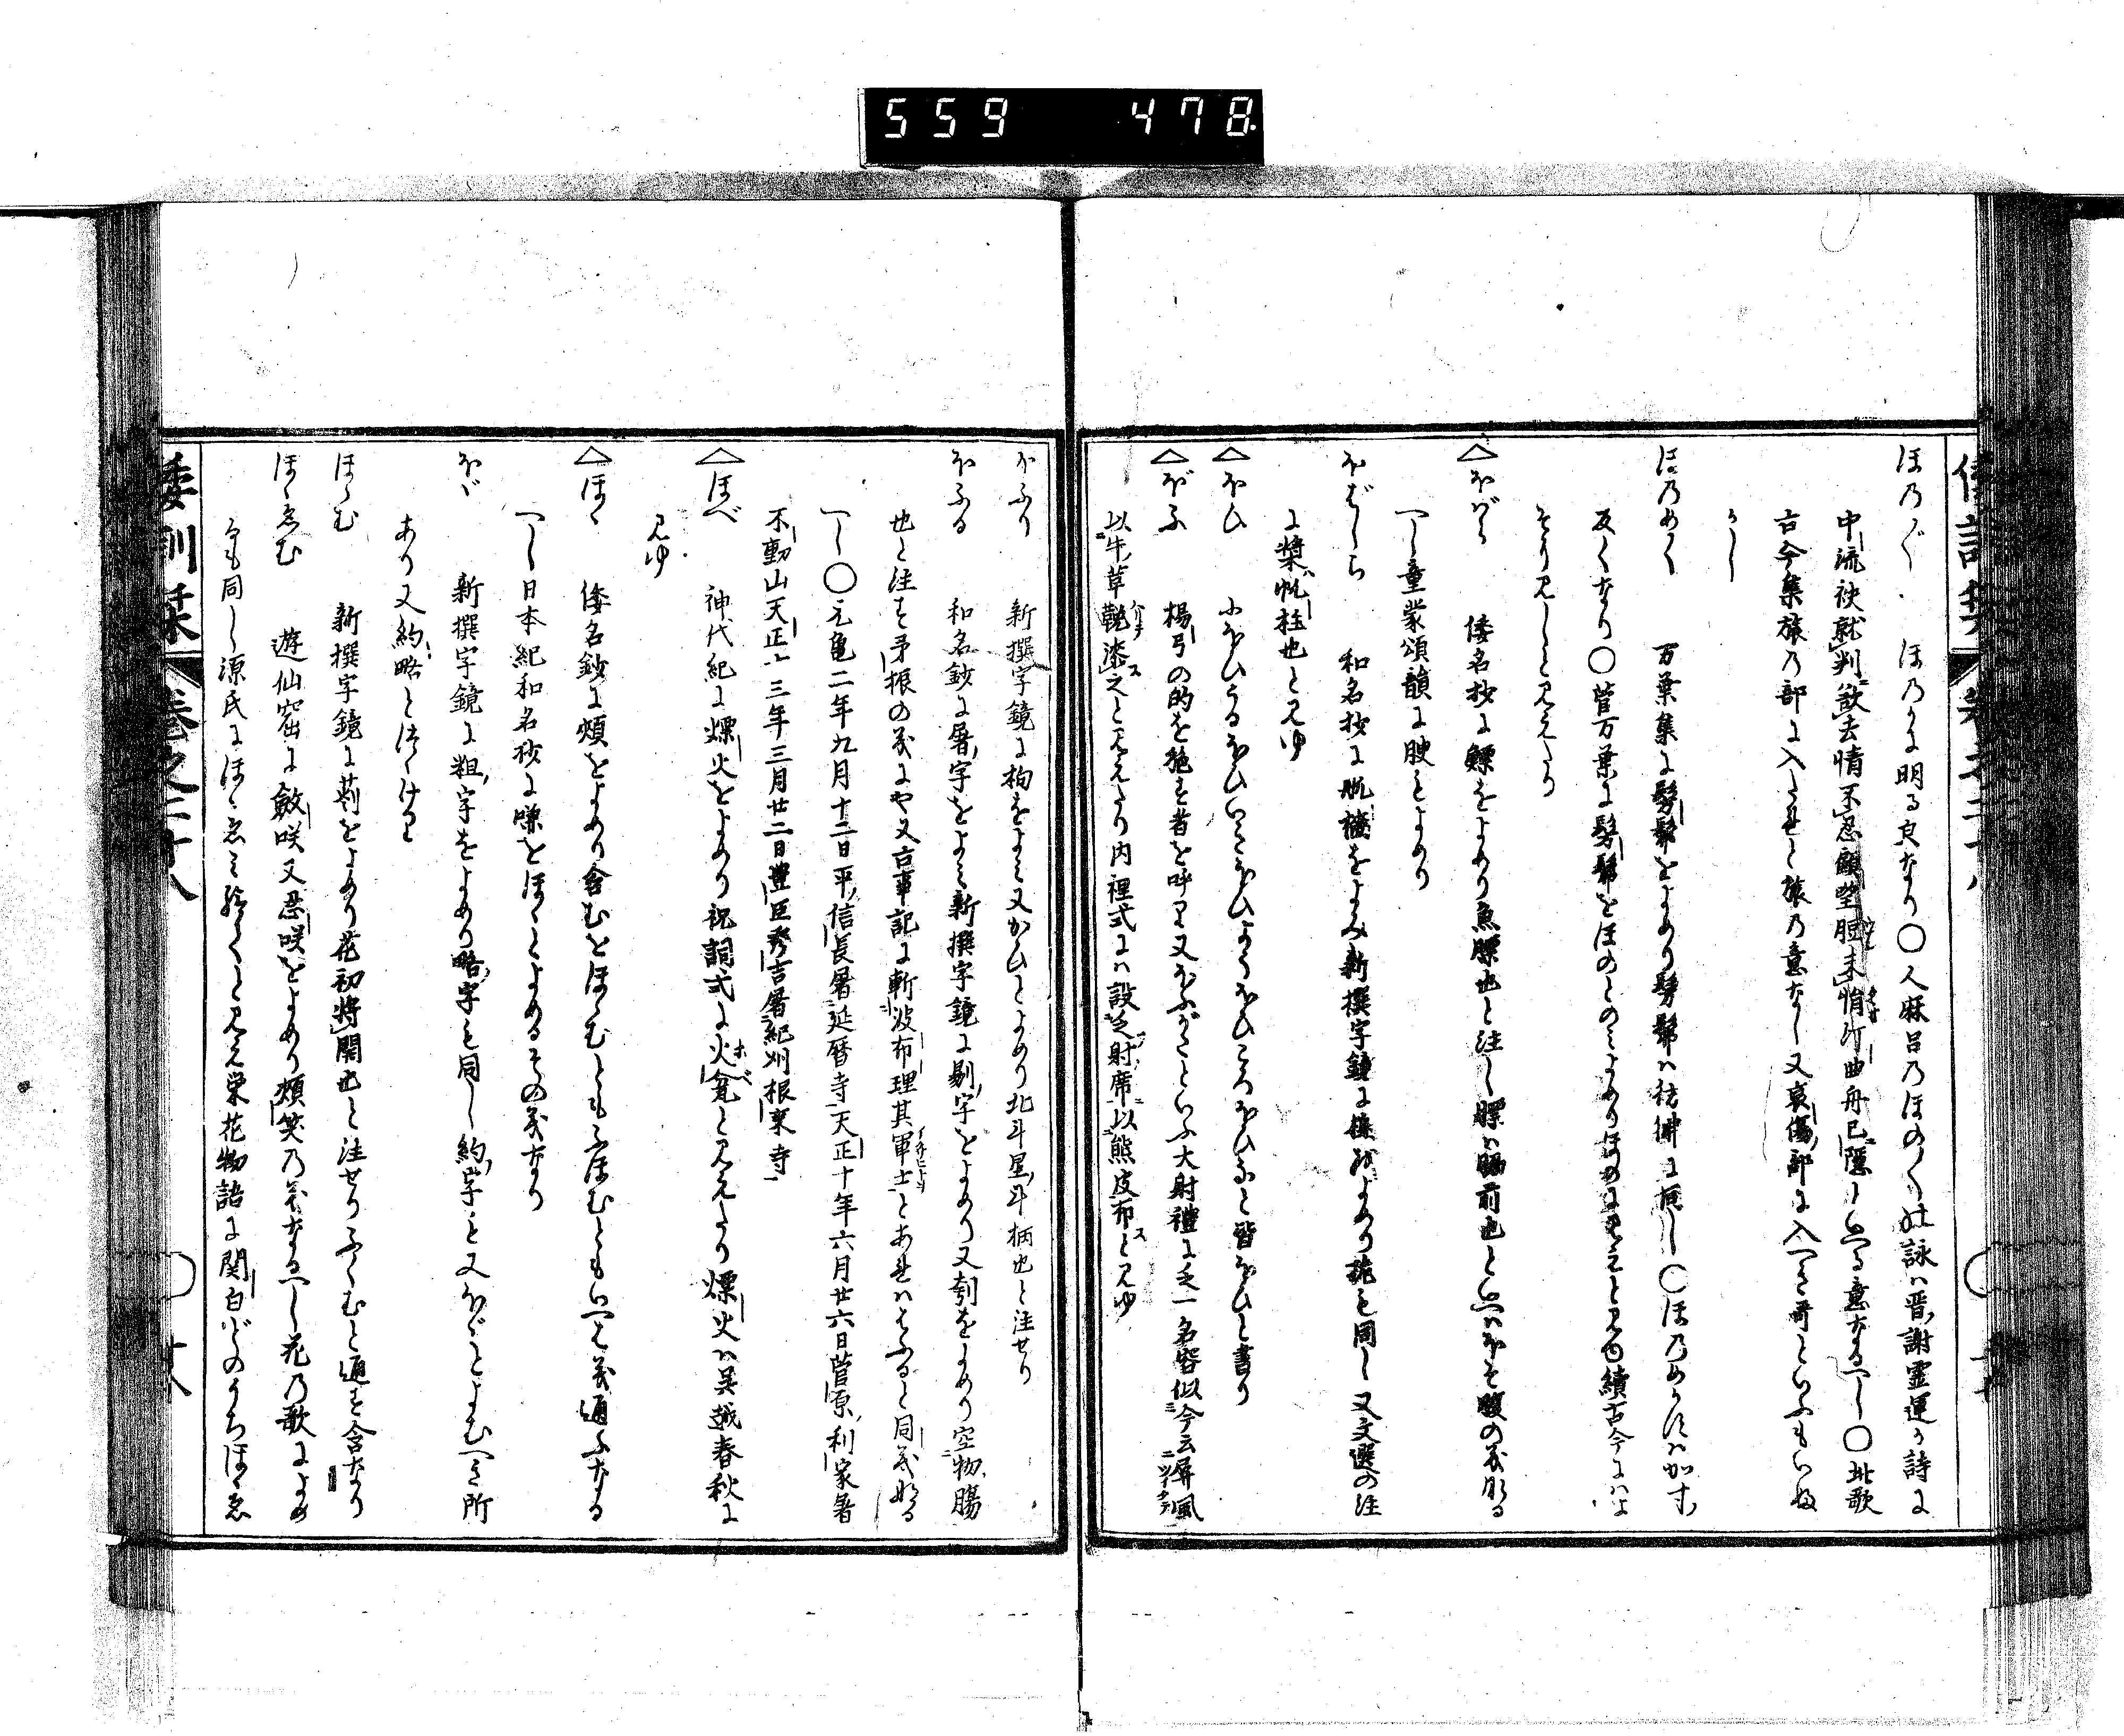 559 478
ほの〴〵 ほのに明る良なり〇人麻呂乃ほの〳〵の詠ハ晋謝霊運か詩に
中流袂就判欲去情不忍顧望脰未悁汀曲舟已隠といへる意なるへし〇此歌
古今集旅乃部に入たれと旅乃意なし又哀傷部に入へき哥といふもいふ
かし
ほのめく 万葉集に髣髴をよめり髣髴ハ彷彿に同し〇ほ乃めかすハかす
反くなり〇菅万葉に髣髴をほのとのミよめりほのにミえしと見ゆ続古今にハよ
そり見しと見えたり
△ほばら 倭名抄に鰾をよめり魚膘也と注し膘ハ脇前也といへハほそ腹の義なる
へし童蒙頌韻に腴をよめり
ほばしら 和名抄に帆檣をよみ新撰字鏡に よめり桅も同し又文選の注
に槳帆柱也と見ゆ
△ほひ おほひうるほひいこほひかくほひころほひなと皆ほひと書り
△ほふ 楊弓の的を施す者を呼り又ほふがさといふ大射禮に乏一名容似今云屏風
以牛革鞔漆之と見えたり内裡式にハ設乏射席以熊皮布と見ゆ
ほふり 新撰字鏡に枸をよミ又かひとよめり北斗星斗柄也と注せり
ほふる 和名鈔に屠字をよミ新撰字鏡に剔字をよめり又刳をよめり空物腸
也と注す矛振の義にや又古事記に斬波布理其軍士とあれハはふると同義なる
へし〇元亀二年九月十二日平信長屠延暦寺天正十年六月廿六日菅原利家屠
不動山天正十三年三月廿二日豊臣秀吉屠紀州根来寺
△ほべ 神代紀に熛火をよめり祝詞式に火瓮と見えたり熛火ハ呉越春秋に
見ゆ
△ほゝ 倭名鈔に頬をよめり含むをほゝむともふほむともいへは義通ふなる
へし日本紀和名抄に嗛をほゝとよめるその義なり
ほゞ 新撰字鏡に粗字をよめり略字も同し約字を又ほゞとよむへき所
あり又約略とつゝけると
ほゝむ 新撰字鏡に莟をよめり花初将開也と注せりふゝむと通す含なり
ほゝゑむ 遊仙窟に斂咲又忍咲をよめり頬笑乃義なるへし花乃歌によめ
るも同し源氏にほゝゑミ給てと見え栄花物語に関白どのうちほゝゑ
倭訓栞 巻之二十八